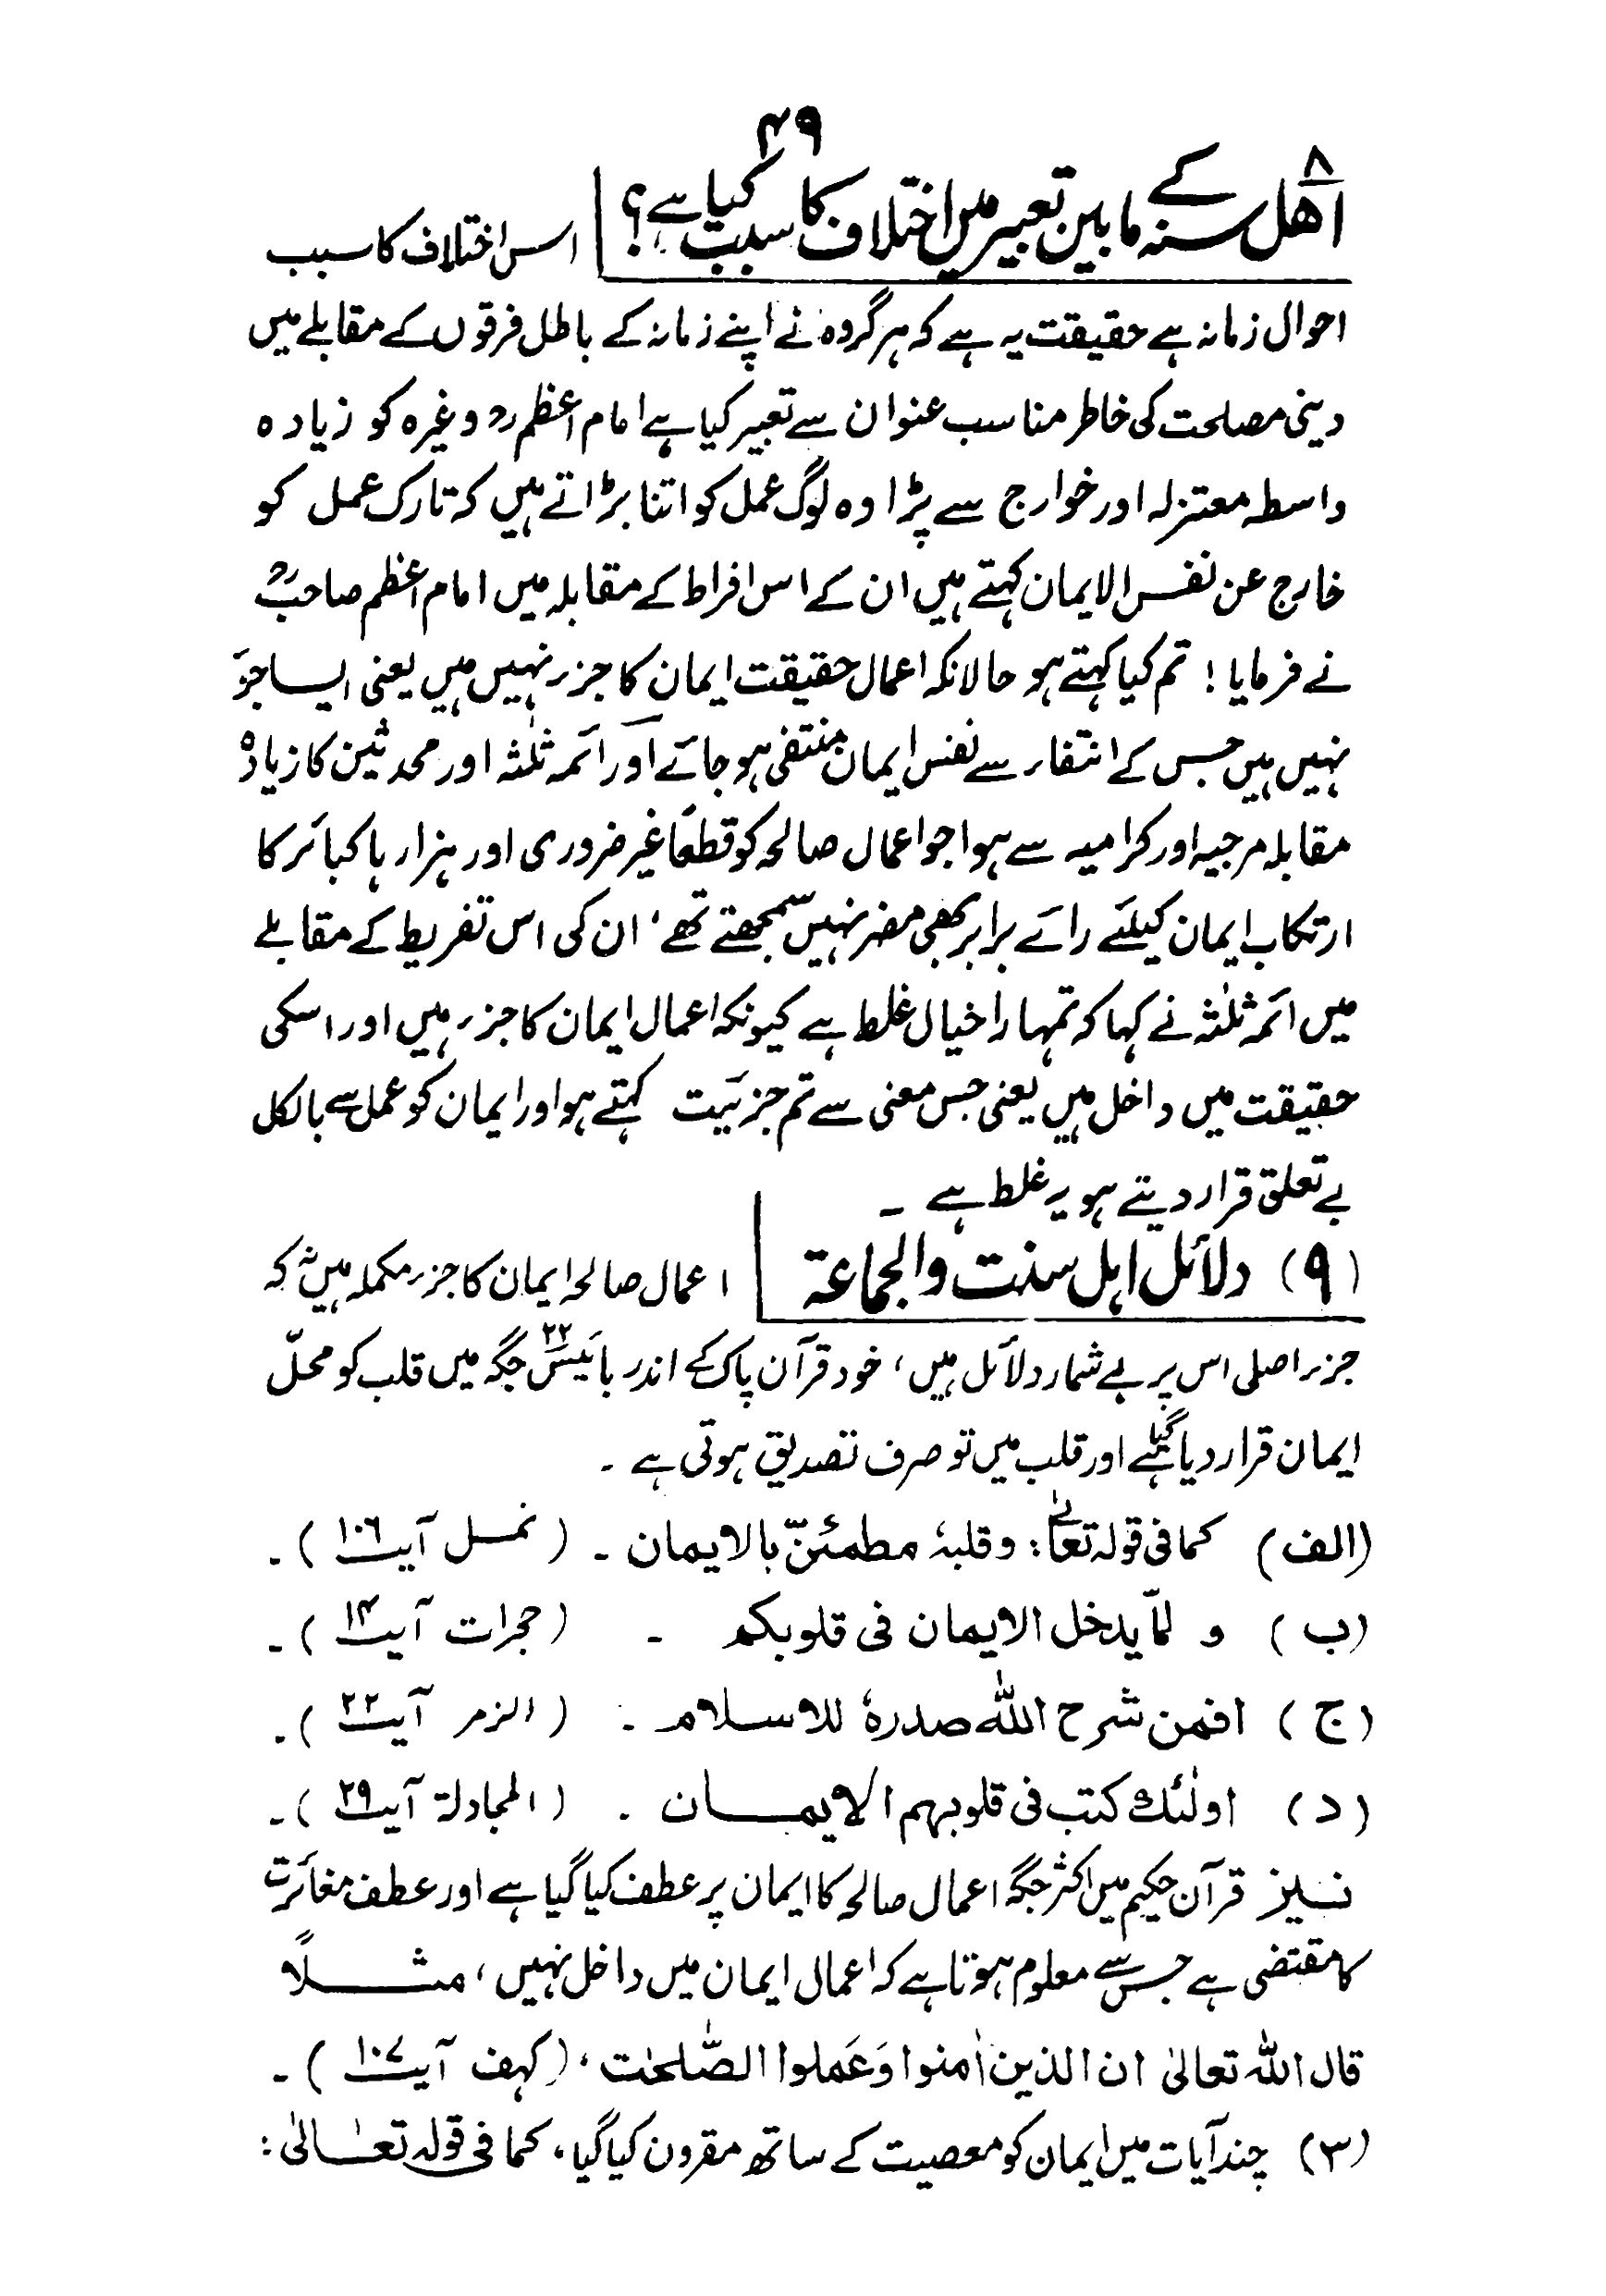 ۴۹
۸ اھل سنہ کے مابین تعبیر میں اختلاف کا سبب کیا ہے؟ اس اختلاف کا سبب
احوال زمانہ ہے حقیقت یہ ہے کہ ہر گروہ نے اپنے زمانہ کے باطل فرقوں کے مقابلے میں
دینی مصلحت کی خاطر مناسب عنوان سے تعبیر کیا ہے امام اعظمؒ وغیرہ کو زیادہ
واسطہ معتزلہ اور خوارج سے پڑا وہ لوگ عمل کو اتنا بڑاتے ہیں کہ تارک عمل کو
خارج عن نفس الایمان کہتے ہیں ان کے اس افراط کے مقابلہ میں امام اعظم صاحبؒ
نے فرمایا ! تم کیا کہتے ہو حالانکہ اعمال حقیقت ایمان کا جزء نہیں ہیں یعنی ایسا جزء
نہیں ہیں جس کے انتفاء سے نفس ایمان منتفی ہو جائے اور ائمہ ثلٰثہ اور محدثین کا زیادہ
مقابلہ مرجیہ اور کرامیہ سے ہوا جو اعمال صالحہ کو قطعًا غیر ضروری اور ہزار ہا کبائر کا
ارتکاب ایمان کیلئے رائے برابر بھی مضر نہیں سمجھتے تھے، ان کی اس تفریط کے مقابلے
میں ائمہ ثلٰثہ نے کہا کہ تمہارا خیال غلط ہے کیونکہ اعمال ایمان کا جزء ہیں اور اسکی
حقیقت میں داخل ہیں یعنی جس معنی سے تم جزئیت کہتے ہو اور ایمان کو عمل سے بالکل
بے تعلق قرار دیتے ہو یہ غلط ہے ۔
(۹) دلائل اہل سنت والجماعۃ اعمال صالحہ ایمان کا جزء مکملہ ہیں نہ کہ
جزء اصلی اس پر بے شمار دلائل ہیں، خود قرآن پاک کے اندر بائیس ۲۲ جگہ میں قلب کو محلّ
ایمان قرار دیا گیا ہے اور قلب میں تو صرف تصدیق ہوتی ہے ۔
(الف) کما فی قولہ تعالیٰ: وقلبہٗ مطمئنّ بالایمان ۔ (نمسل آیت ۱۰۶) ۔
(ب) و لمّا یدخل الایمان فی قلوبکم ۔ (حجرات آیت ۱۴) ۔
(ج) افمن شرح اللہ صدرہٗ للاسلام ۔ (الزمر آیت ۲۲) ۔
(د) اولٰئک کتب فی قلوبہم الایمان ۔ (المجادلۃ آیت ۲۹) ۔
نیز قرآن حکیم میں اکثر جگہ اعمال صالحہ کا ایمان پر عطف کیا گیا ہے اور عطف مغائرت
کا مقتضی ہے جس سے معلوم ہوتا ہے کہ اعمال ایمان میں داخل نہیں، مثلًا
قال اللہ تعالیٰ ان الذین اٰمنوا وَعَملوا الصّٰلحٰت، (کہف آیت ۱۰۷) ۔
(۳) چند آیات میں ایمان کو معصیت کے ساتھ مقرون کیا گیا، کما فی قولہ تعالیٰ: